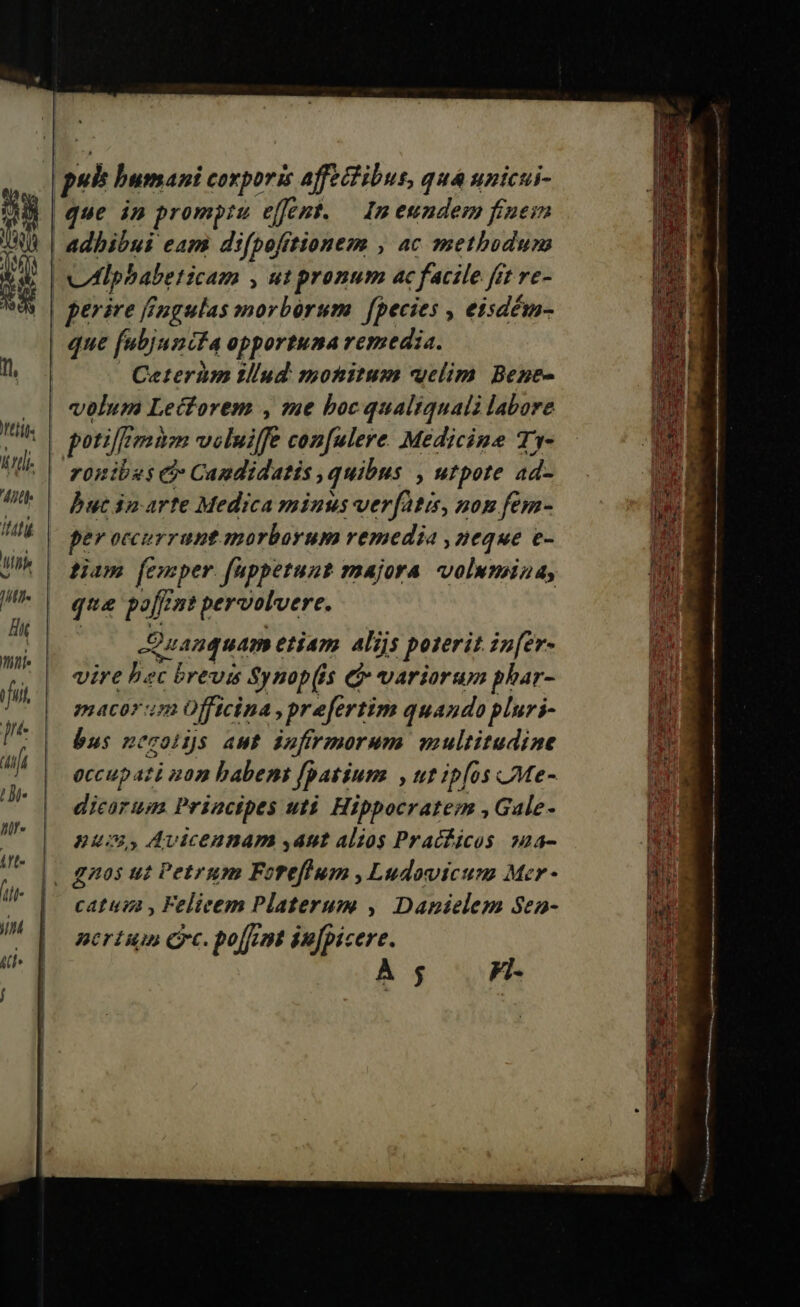 puls humani corporis affectibus, quâ unicui-
que in promptu essent. In eundem finem
adhibui eam dispositionem , ac methodum
Alphabeticam , ut pronum ac facile sit re-
perire singulas morborum species , eisdém-
que subjuncta opportuna remedia.
Ceterùm illud monitum velim Bene-
volum Lectorem , me hoc qualiquali labore
potissimùm voluisse consulere Medicinæ Ty-
ronibus & Candidatis , quibus , utpote ad-
huc in arte Medica minùs versatis, non sem-
per occurrunt morborum remedia , neque e-
tiam semper suppetunt majora volumina,
quæ possint pervolvere.
Quanquam etiam alijs poterit inser-
vire hæc brevis Synopsis & variorum phar-
macorum Officina , præsertim quando pluri-
bus negotijs aut infirmorum multitudine
occupati non habent spatium , ut ipsos Me-
dicorum Principes uti Hippocratem , Gale-
num, Avicennam , aut alios Practicos ma-
gnos ut Petrum Forestum , Ludovicum Mer-
catum , Felicem Platerum , Danielem Sen-
nertum &c. possint inspicere.
A 5 Fl-